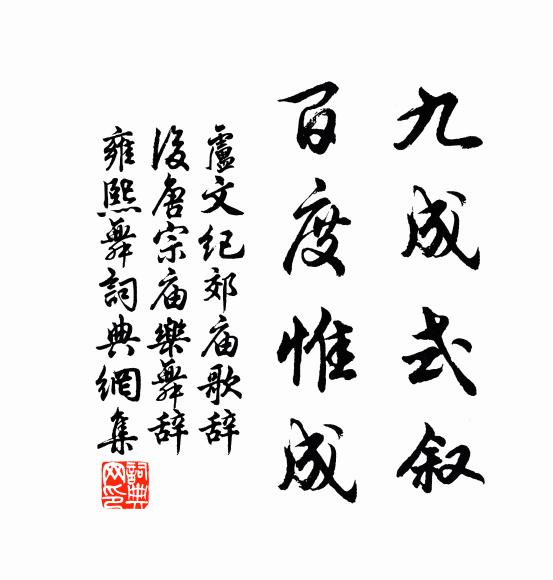 九成式叙
百度惟成
盧文纪郊庙歌辞
後唐宗庙樂舞辞
雍熙舞詞典網集
詞典
网印